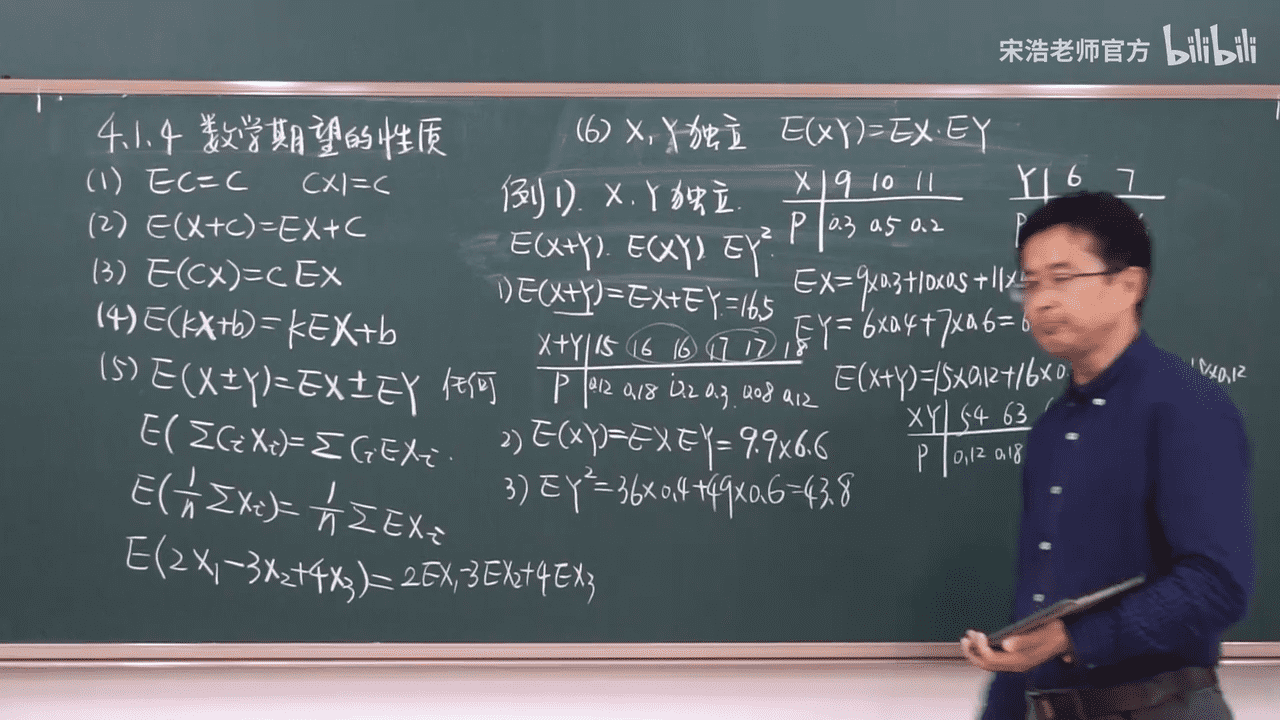 宋浩老师官方 bilibili
4.1.4 数学期望的性质
(1) EC=C C×1=C
(2) E(X+C)=EX+C
(3) E(CX)=C EX
(4) E(kX+b)=kEX+b
(5) E(X±Y)=EX±EY 任何
E(ΣCᵢXᵢ)=ΣCᵢEXᵢ.
E(1/n ΣXᵢ)=1/n ΣEXᵢ
E(2X₁-3X₂+4X₃)=2EX₁-3EX₂+4EX₃
(6) X,Y独立 E(XY)=EX·EY
例1). X,Y独立.
X 9 10 11
P 0.3 0.5 0.2
Y 6 7
P
E(X+Y). E(XY) EY².
1) E(X+Y)=EX+EY=16.5
X+Y 15 16 16 17 17 18
P 0.12 0.18 0.2 0.3 0.08 0.12
2) E(XY)=EXEY=9.9×6.6
3) EY²=36×0.4+49×0.6=43.8
EX=9×0.3+10×0.5+11×
EY=6×0.4+7×0.6=6
E(X+Y)=15×0.12+16×0. 18×0.12
XY 54 63
P 0.12 0.18